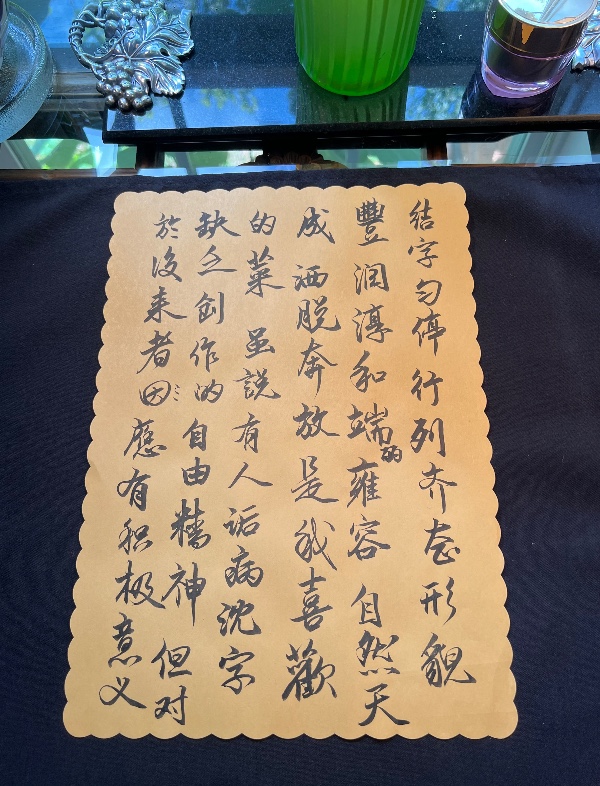 结字匀停行列齐态形貌
豐润淳和端的雍容自然天
成洒脱奔放是我喜歡
的菜虽説有人诟病沈字
缺乏创作的自由精神但对
於後来者因應有积极意义